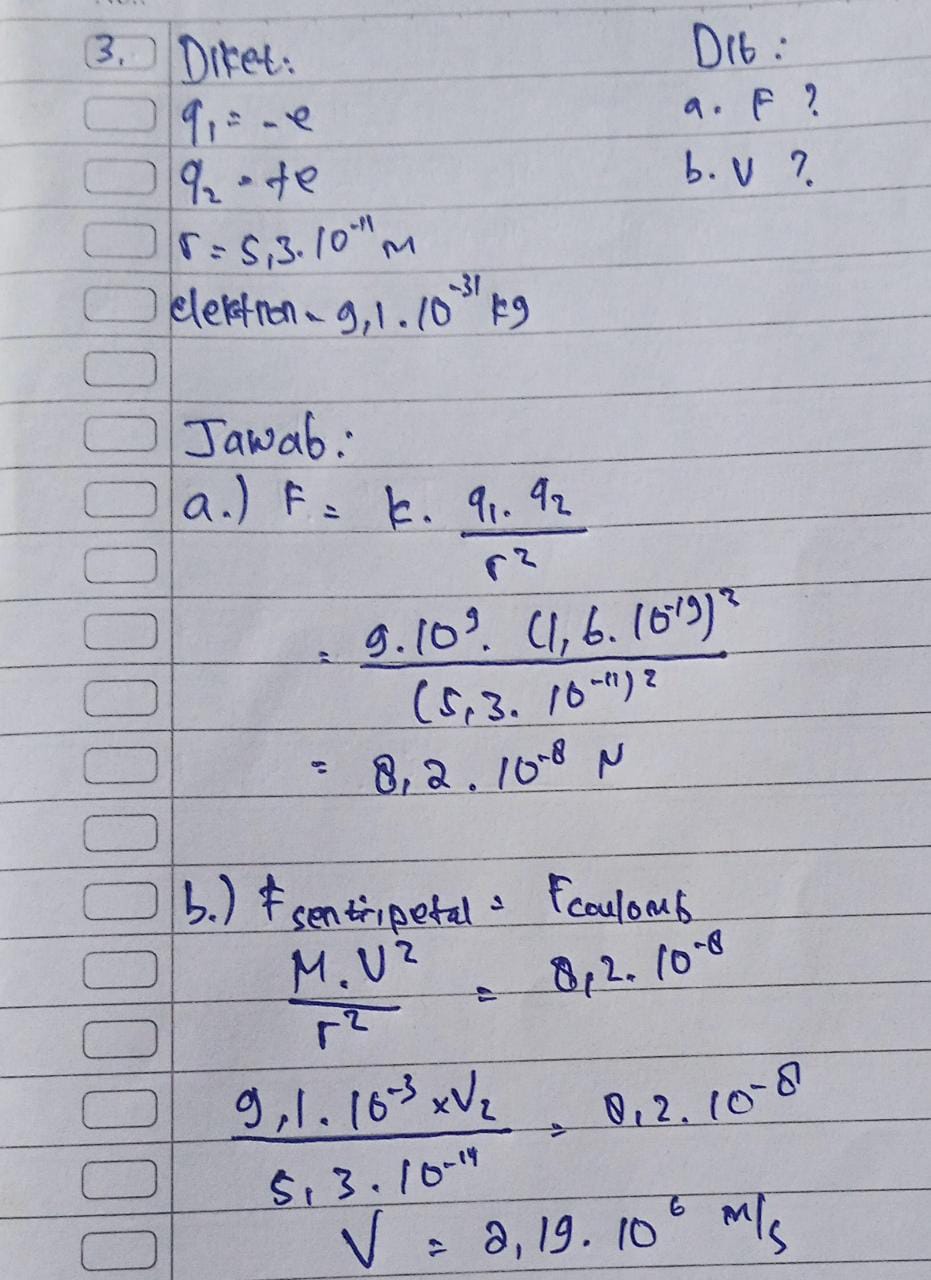 3. Diket: Dit :
q₁ = -e a. F ?
q₂ = +e b. V ?
r = 5,3. 10⁻¹¹ m
elektron = 9,1. 10⁻³¹ kg
Jawab :
a.) F = k. q₁. q₂
r²
= 9.10⁹. (1,6. 10⁻¹⁹)²
(5,3. 10⁻¹¹)²
= 8,2. 10⁻⁸ N
b.) F sentripetal = Fcoulomb
M. V² = 8,2. 10⁻⁸
r²
9,1. 10⁻³ x V₂ = 8,2. 10⁻⁸
5,3. 10⁻¹⁴
V = 2,19. 10⁶ m/s